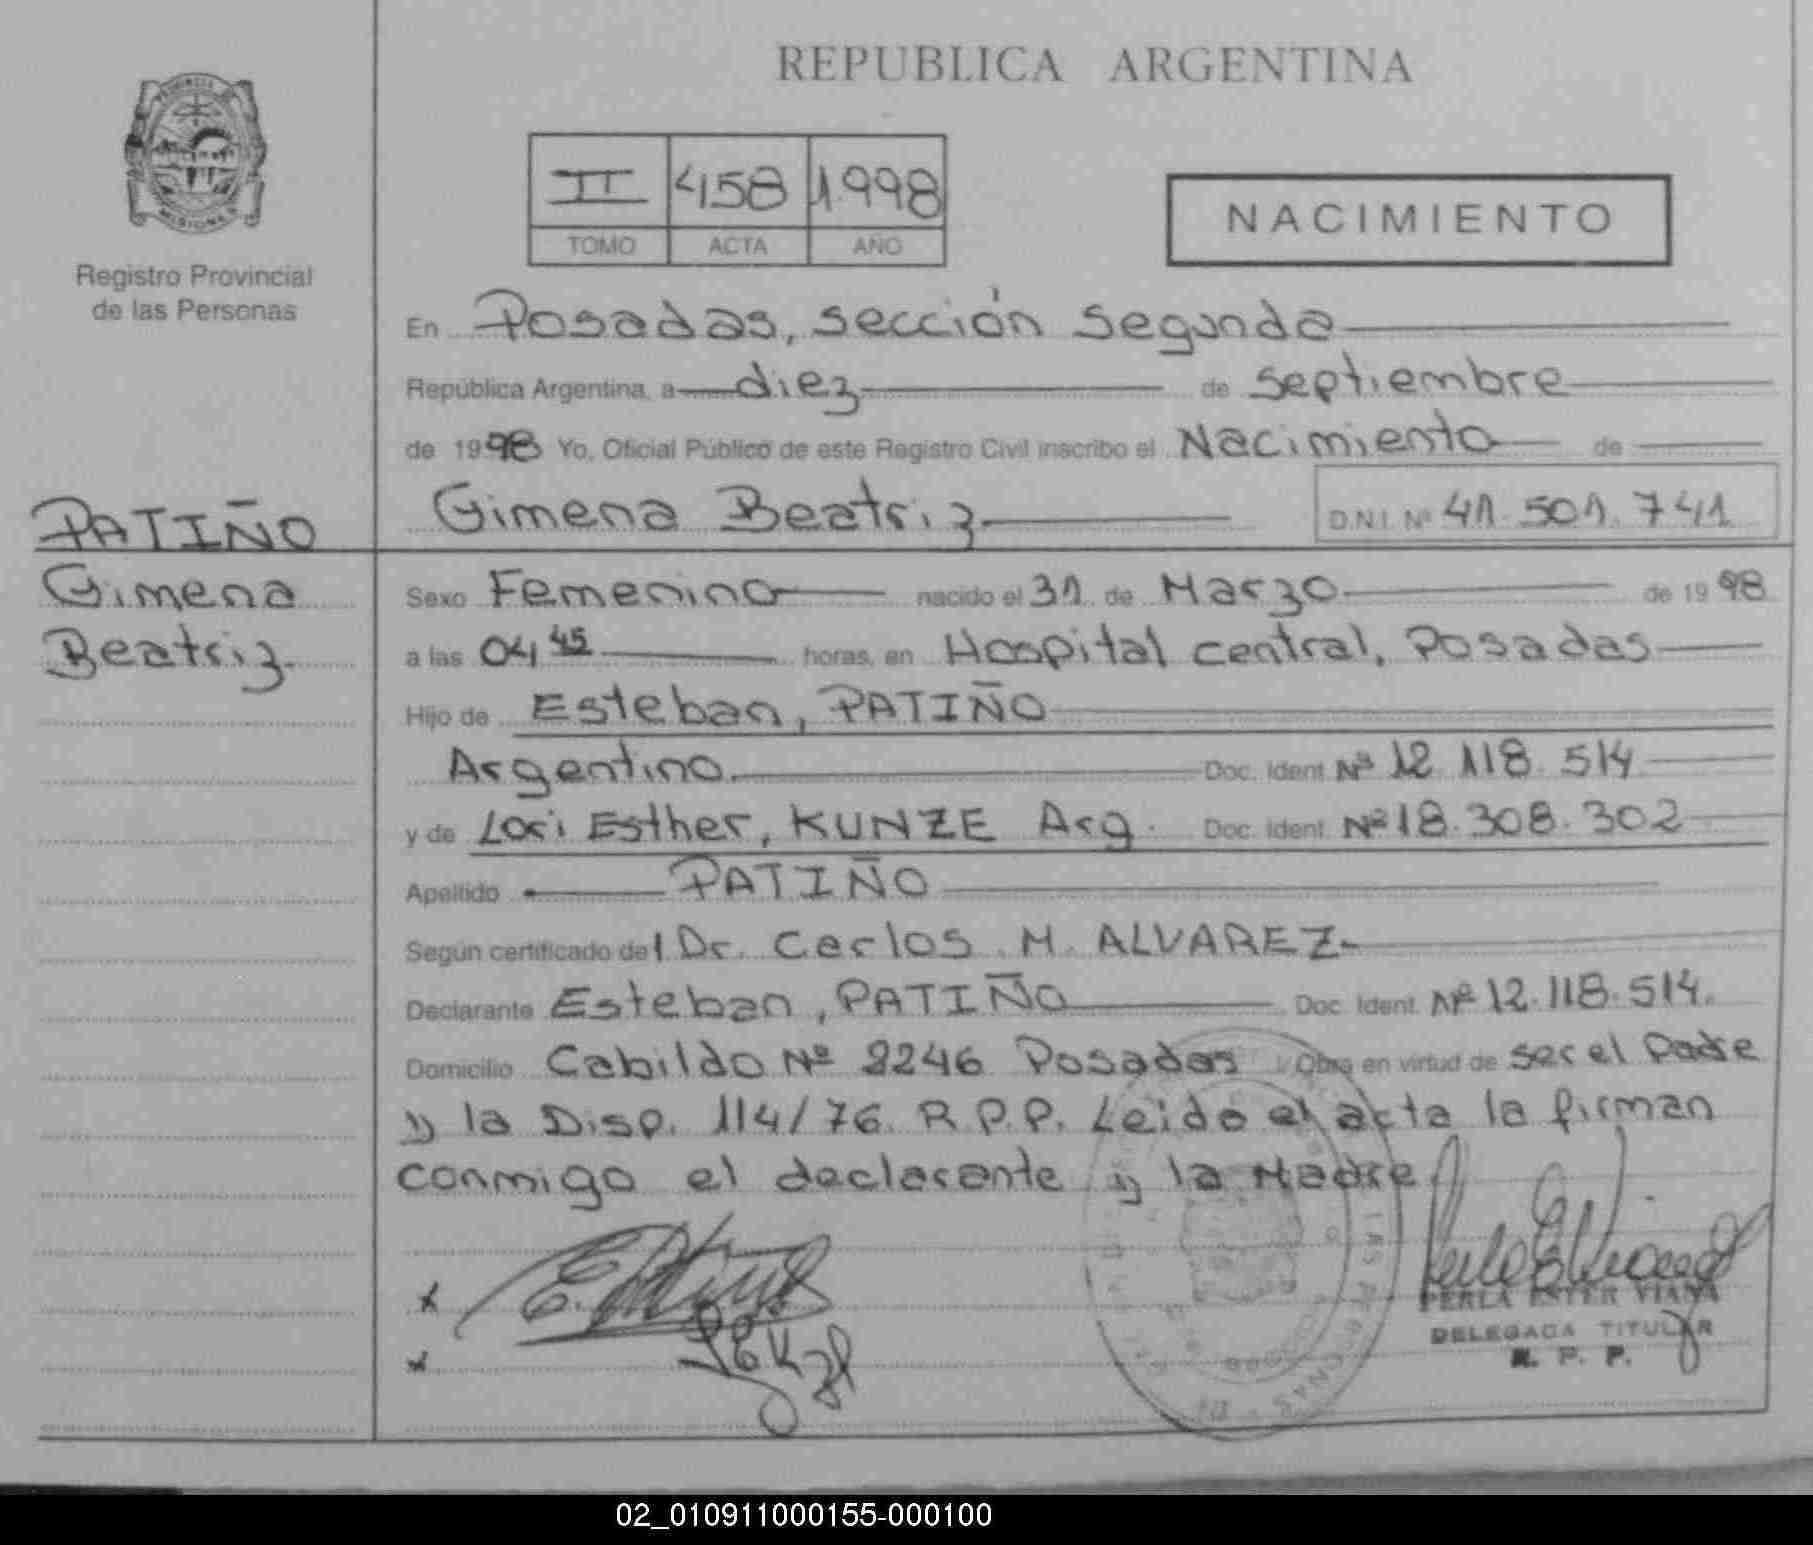 REPUBLICA ARGENTINA
PROVINCIA
MISIONES
Registro Provincial
de las Personas
II 458 1.998
TOMO ACTA AÑO
NACIMIENTO
En Posadas, sección segunda
República Argentina, a diez de septiembre
de 1998 Yo, Oficial Público de este Registro Civil inscribo el Nacimiento de
Gimena Beatriz D.N.I. Nº 41.501.741
PATIÑO
Gimena
Beatriz.
Sexo Femenino nacido el 31 de Marzo de 1998
a las 04,45 horas, en Hospital central, Posadas
Hijo de Esteban, PATIÑO
Argentino Doc. Ident. Nº 12.118.514
y de Lori Esther, KUNZE Arg. Doc. Ident. Nº 18.308.302
Apellido PATIÑO
Según certificado del Dr. Carlos M. ALVAREZ
Declarante Esteban, PATIÑO Doc. Ident. Nº 12.118.514.
Domicilio Cabildo Nº 2246 Posadas Obra en virtud de ser el Padre
y la Disp. 114/76 R.P.P. Leido el acta la firman
conmigo el declarante y la Madre
PERLA ESTER VIANA
DELEGADA TITULAR
R. P. P.
02_010911000155-000100